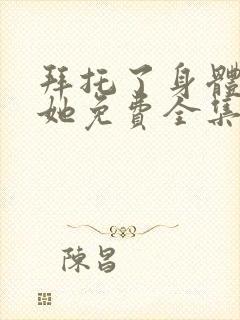 拜托了身體
她免費全集
陳昌